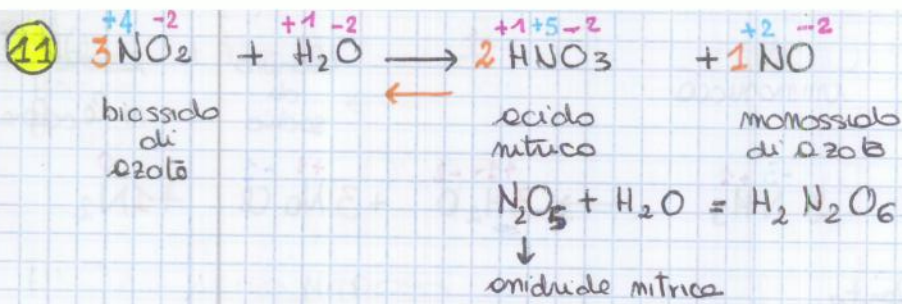 +4 -2 +1 -2 +1+5-2 +2 -2
11 3NO₂ + H₂O ⟶ 2HNO₃ + 1NO
⟵
biossido di azoto
acido nitrico
monossido di azoto
N₂O₅ + H₂O = H₂N₂O₆
↓
anidride nitrica